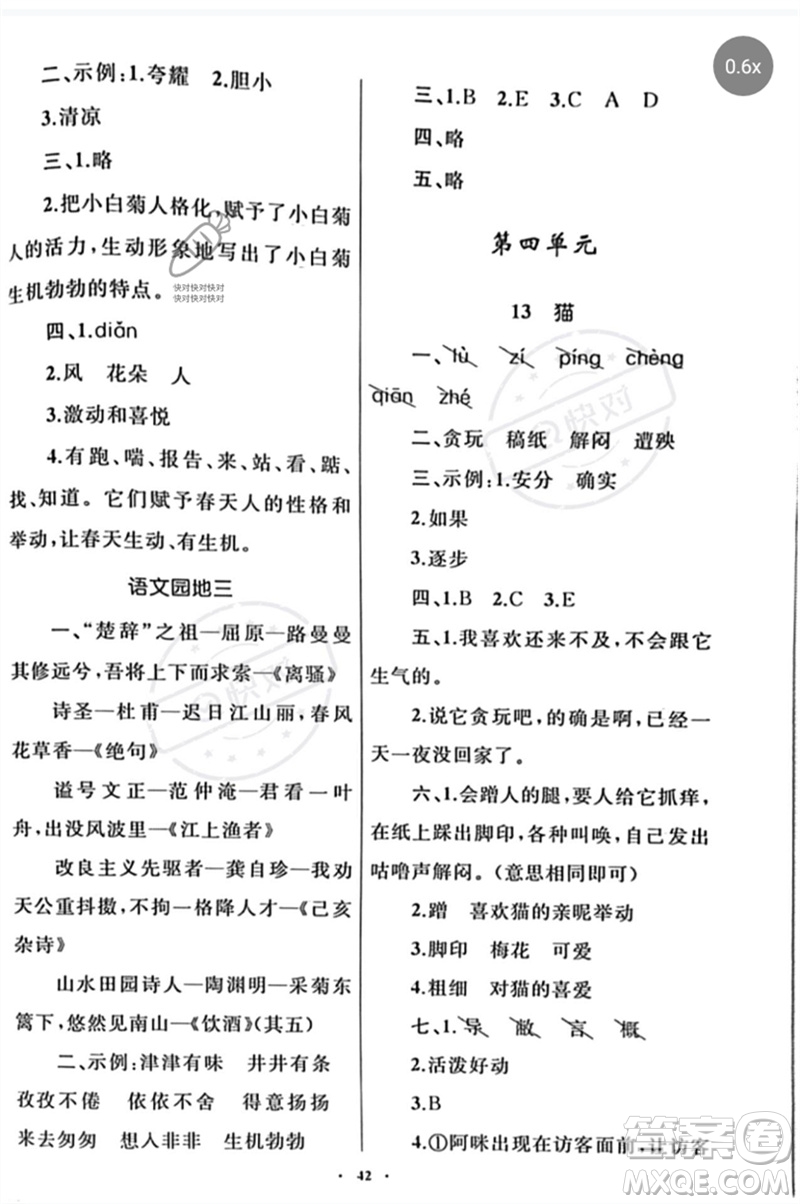 二、示例:1.夸耀 2.胆小
3.清凉
三、1.略
2.把小白菊人格化,赋予了小白菊
人的活力,生动形象地写出了小白菊
生机勃勃的特点。
快对快对快对
快对快对快对
四、1.diǎn
2.风 花朵 人
3.激动和喜悦
4.有跑、喘、报告、来、站、看、踮、
找、知道。它们赋予春天人的性格和
举动,让春天生动、有生机。
语文园地三
一、“楚辞”之祖—屈原—路曼曼
其修远兮,吾将上下而求索—《离骚》
诗圣—杜甫—迟日江山丽,春风
花草香—《绝句》
谥号文正—范仲淹—君看一叶
舟,出没风波里—《江上渔者》
改良主义先驱者—龚自珍—我劝
天公重抖擞,不拘一格降人才—《己亥
杂诗》
山水田园诗人—陶渊明—采菊东
篱下,悠然见南山—《饮酒》(其五)
二、示例:津津有味 井井有条
孜孜不倦 依依不舍 得意扬扬
来去匆匆 想入非非 生机勃勃
0.6x
三、1.B 2.E 3.C A D
四、略
五、略
第四单元
13 猫
一、lù zí píng chèng
qiān zhé
二、贪玩 稿纸 解闷 遭殃
三、示例:1.安分 确实
2.如果
3.逐步
四、1.B 2.C 3.E
五、1.我喜欢还来不及,不会跟它
生气的。
2.说它贪玩吧,的确是啊,已经一
天一夜没回家了。
六、1.会蹭人的腿,要人给它抓痒,
在纸上踩出脚印,各种叫唤,自己发出
咕噜声解闷。(意思相同即可)
2.蹭 喜欢猫的亲昵举动
3.脚印 梅花 可爱
4.粗细 对猫的喜爱
七、1.导 敝 言 概
2.活泼好动
3.B
4.①阿咪出现在访客面前,让访客
· 42 ·
快对
快对
答案圈
MXQE.COM